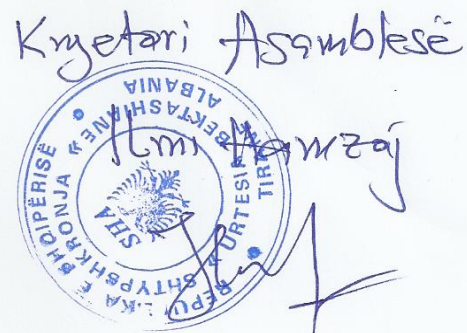 Kryetari Asamblesë
Ilmi Hamzaj
REPUBLIKA E SHQIPËRISË
SHTYPSHKRONJA « URTESIA BEKTASHIANE
TIRANË
ALBANIA
SHA